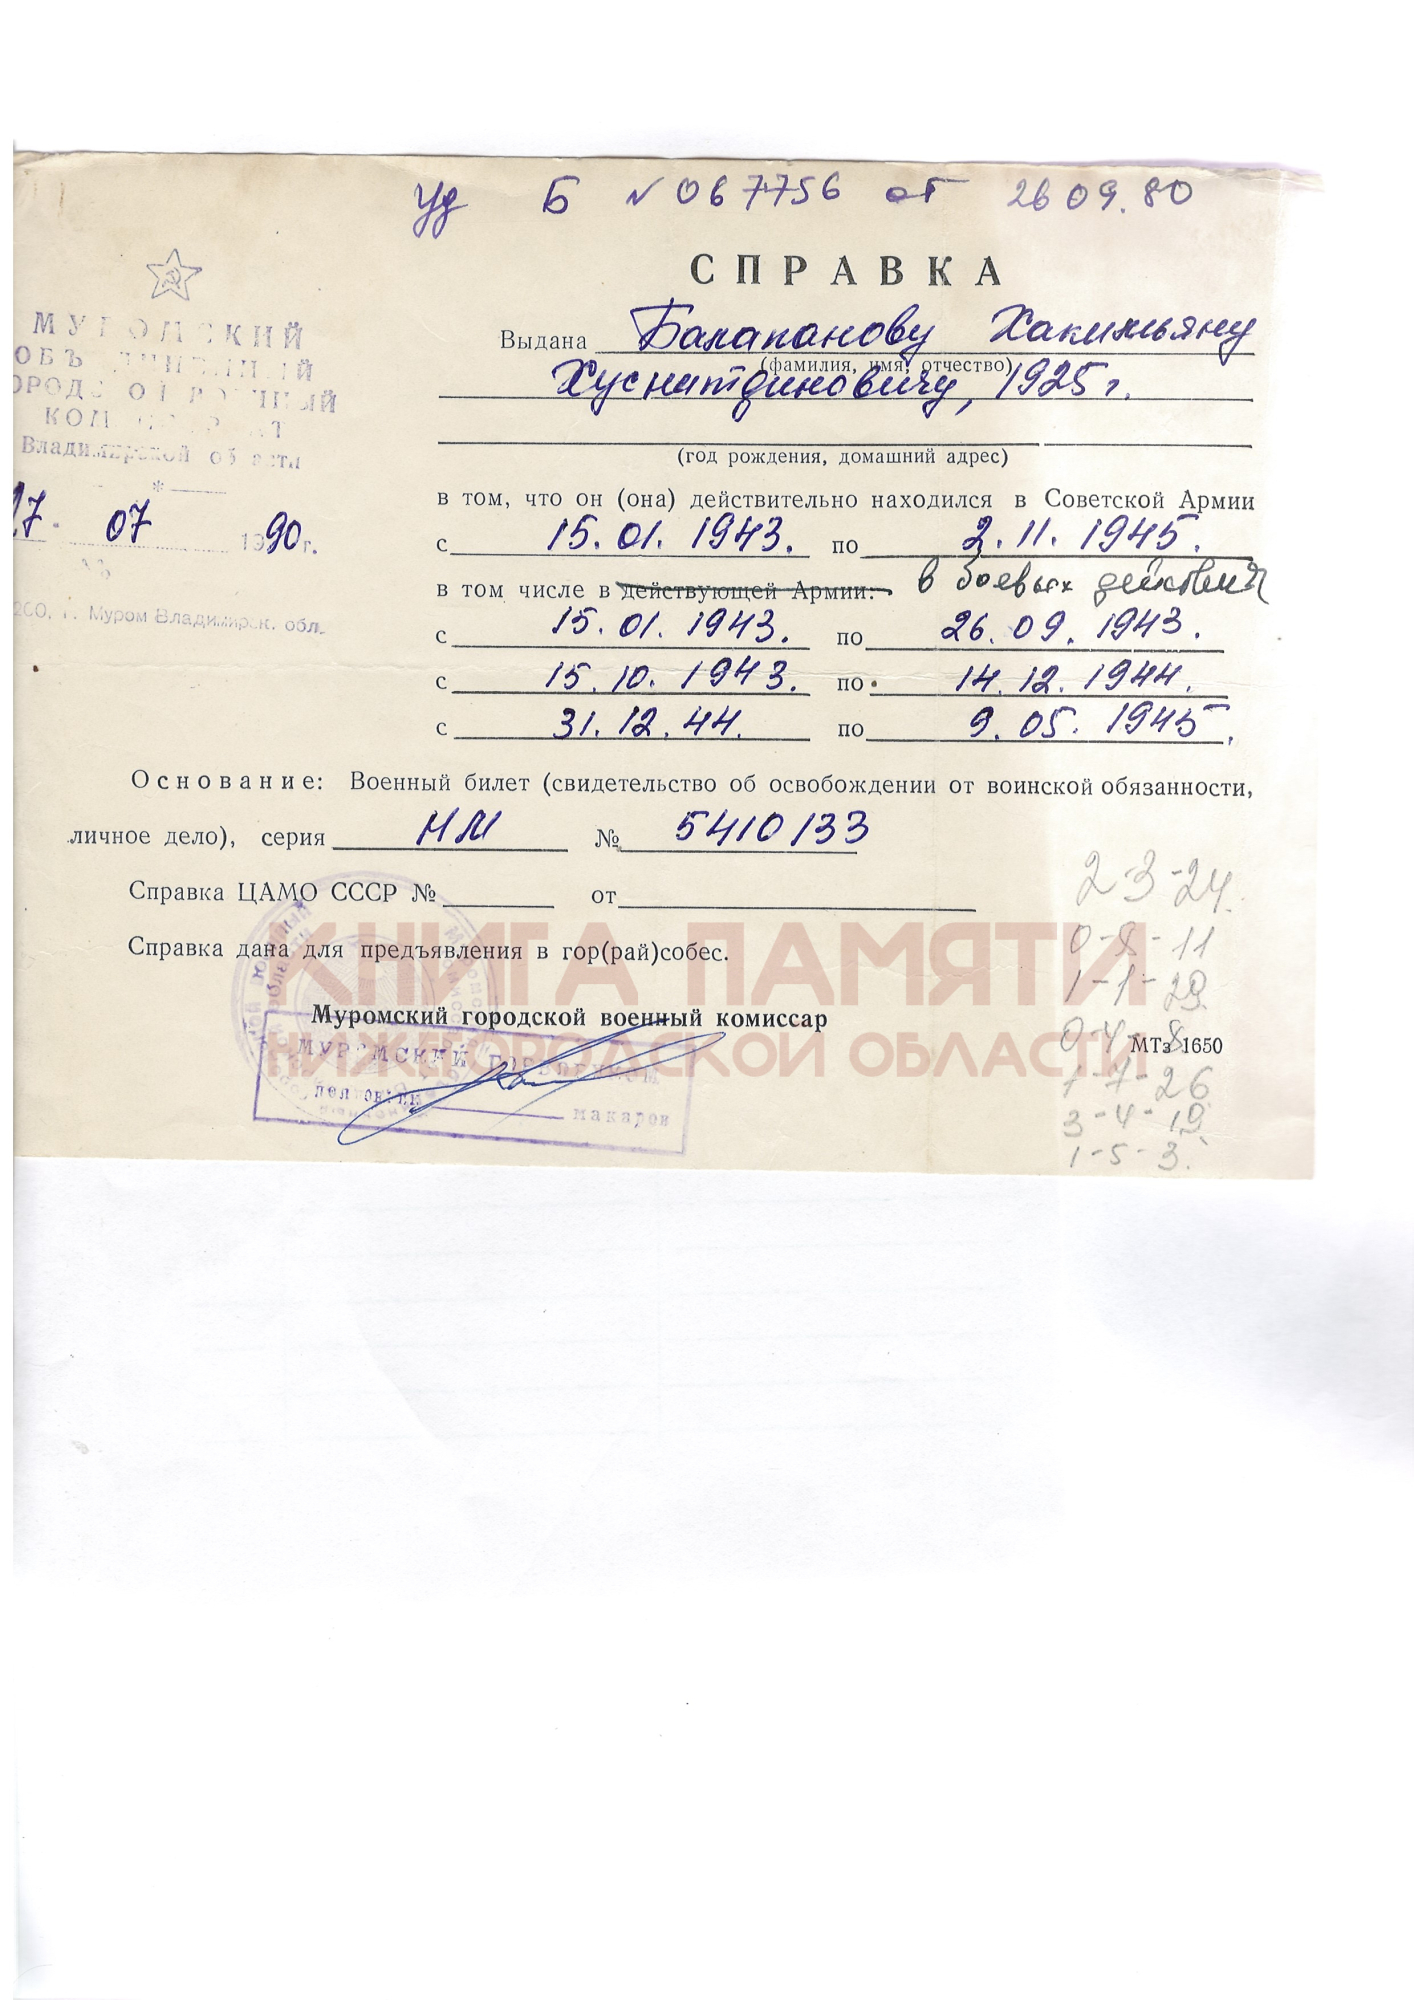 Уд Б № 067756 от 26 09. 80
СПРАВКА
МУРОМСКИЙ
ОБЪЕДИНЕННЫЙ
ОРОДСКОЙ ВОЕННЫЙ
КОМИССАРИАТ
Владимирской области
27 07 1990 г.
200, г. Муром Владимирск. обл.
Выдана Балапанову Хакимьяну
(фамилия, имя, отчество)
Хуснитдиновичу, 1925 г.
(год рождения, домашний адрес)
в том, что он (она) действительно находился в Советской Армии
с 15. 01. 1943. по 2. 11. 1945.
в том числе в действующей Армии: в боевых действия
с 15. 01. 1943. по 26. 09. 1943.
с 15. 10. 1943. по 14. 12. 1944.
с 31. 12. 44. по 9. 05. 1945.
Основание: Военный билет (свидетельство об освобождении от воинской обязанности,
личное дело), серия НМ № 5410133
Справка ЦАМО СССР № от
Справка дана для предъявления в гор(рай)собес.
Муромский городской военный комиссар
МУРОМСКИЙ ГОРВОЕНКОМ
полковник макаров
МТз 1650
2-3-24.
0-8-11
1-1-29.
0-4-8
1-7-26
3-4-19.
1-5-3.
КНИГА ПАМЯТИ
НИЖЕГОРОДСКОЙ ОБЛАСТИ